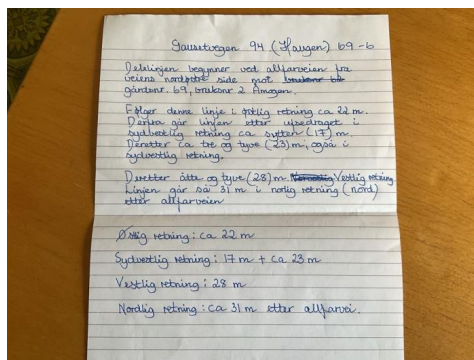 Gausetvegen 94 (Haugen) 69-6
Delelinjen begynner ved allfarveien fra
veiens nordøstre side mot
gårdsnr. 69, bruksnr 2 Amogen.
Følger denne linje i østlig retning ca 22 m.
Derfra går linjen etter
sydvestlig retning ca sytten (17) m.
Deretter ca tre og tyve (23) m, også i
sydvestlig retning.
Deretter åtte og tyve (28) m. Vestlig retning
Linjen går så 31 m i norlig retning (nord)
etter allfarveien
Østlig retning: ca 22 m
Sydvestlig retning: 17 m + ca 23 m
Vestlig retning: 28 m
Nordlig retning: ca 31 m etter allfarvei.